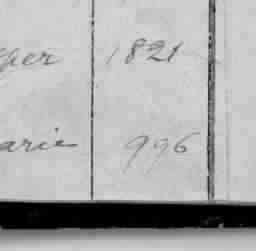 per 1821
arie 996